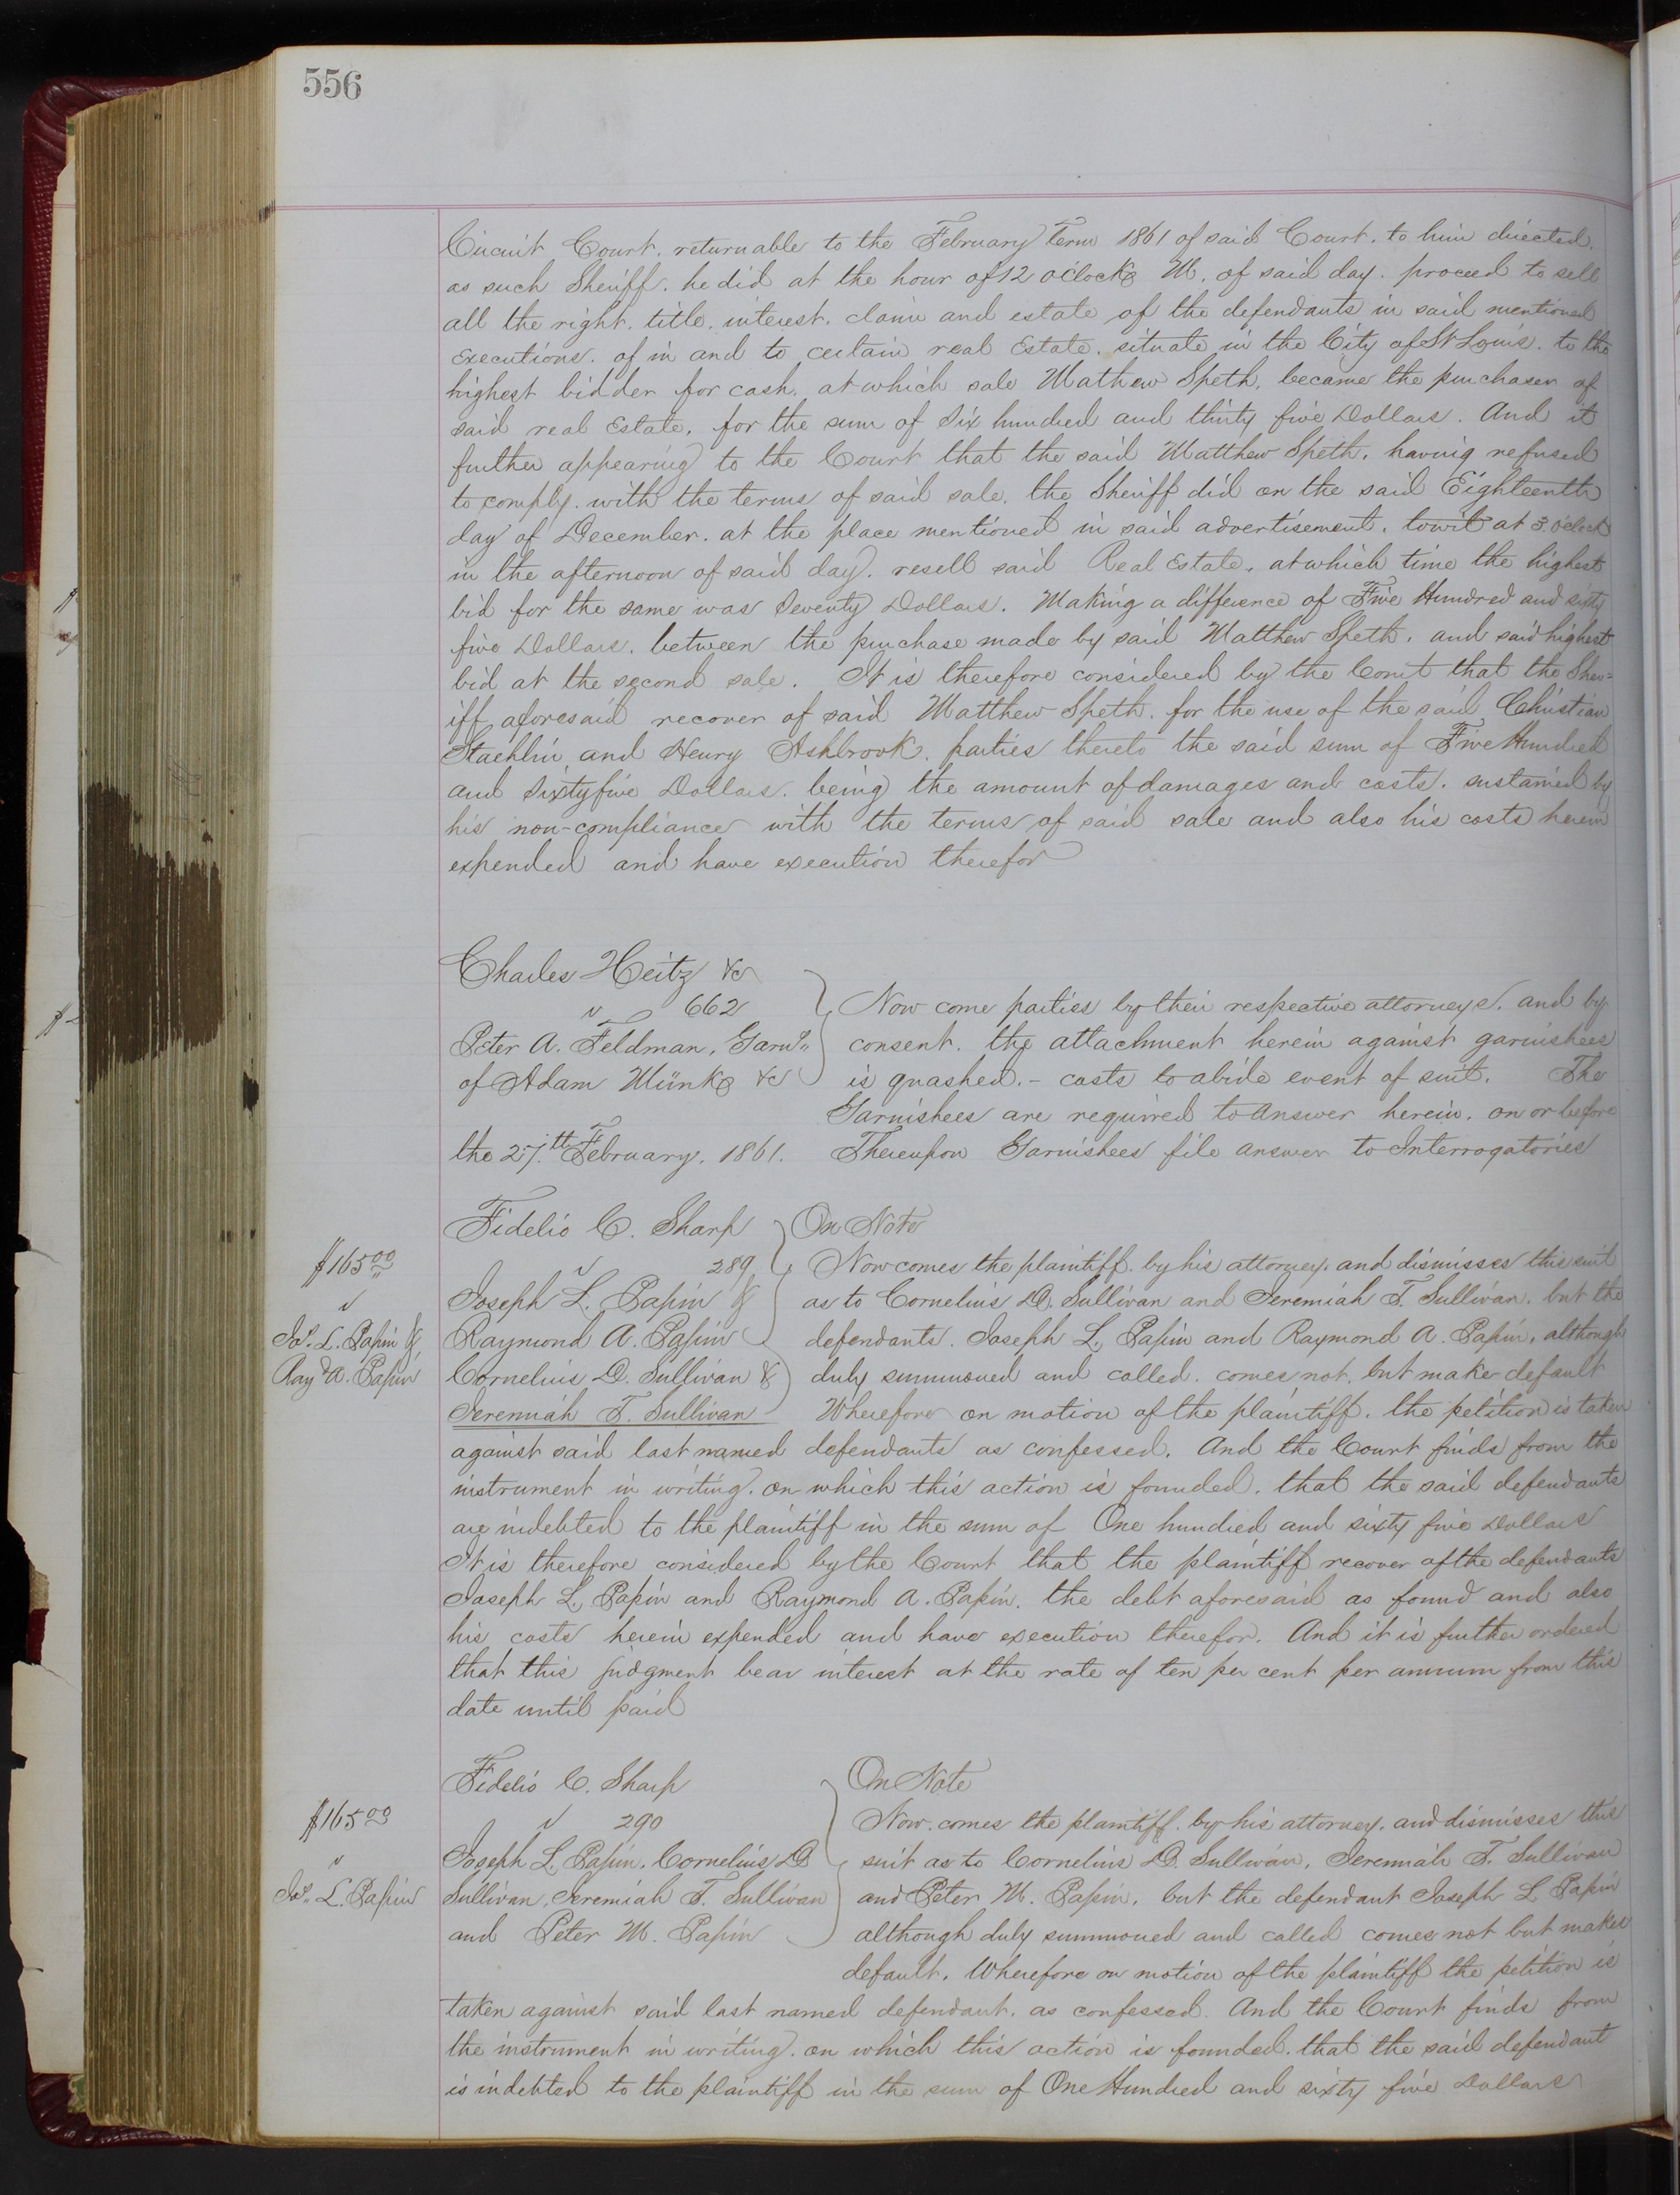 556
Circuit Court. returnable to the February Term 1861 of said Court. to him directed.
as such Sheriff. he did at the hour of 12 o'clock M. of said day. proceed to sell
all the right. title. interest. claim and estate of the defendants in said mentioned
executions. of in and to certain real Estate. situate in the City of St Louis. to the
highest bidder for cash. at which sale Mathew Speth. became the purchaser of
said real Estate. for the sum of Six hundred and thirty five Dollars. And it
further appearing to the Court that the said Matthew Speth. having refused
to comply. with the terms of said sale. the Sheriff did on the said Eighteenth
day of December. at the place mentioned in said advertisement. towit at 3 o'clock
in the afternoon of said day. resell said Real Estate. at which time the highest
bid for the same was Seventy Dollars. Making a difference of Five Hundred and sixty
five Dollars. between the purchase made by said Matthew Speth. and said highest
bid at the second sale. It is therefore considered by the Court that the Sher=
iff aforesaid recover of said Matthew Speth. for the use of the said Christian
Staehlin and Henry Ashbrook. parties thereto the said sum of Five Hundred
and Sixty five Dollars. being the amount of damages and costs. sustained by
his non-compliance with the terms of said sale and also his costs herein
expended and have execution therefor
Charles Heitz &c
v 662
Peter A. Feldman, Garns.
of Adam Münk &c
Now come parties by their respective attorneys. and by
consent. the attachment herein against garnishees
is quashed. - costs to abide event of suit. The
Garnishees are required to answer herein. on or before
the 27th February. 1861. Thereupon Garnishees file answer to Interrogatories
$165 00
v
Jos. L. Papin &
Rayd A. Papin
Fidelio C. Sharp
v 289
Joseph L. Papin &
Raymond A. Papin
Cornelius D. Sullivan &
Jeremiah T. Sullivan
On Note
Now comes the plaintiff. by his attorney. and dismisses this suit
as to Cornelius D. Sullivan and Jeremiah T. Sullivan. but the
defendants. Joseph L. Papin and Raymond A. Papin. although
duly summoned and called. comes not. but make default
Wherefore on motion of the plaintiff. the petition is taken
against said last named defendants as confessed. And the Court finds from the
instrument in writing. on which this action is founded. that the said defendants
are indebted to the plaintiff in the sum of One hundred and sixty five Dollars
It is therefore considered by the Court that the plaintiff recover of the defendants
Joseph L. Papin and Raymond A. Papin. the debt aforesaid as found and also
his costs herein expended and have execution therefor. And it is further ordered
that this judgment bear interest at the rate of ten per cent per annum from this
date until paid
$165 00
v
Jos. L. Papin
Fidelio C. Sharp
v 290
Joseph L. Papin. Cornelius D
Sullivan, Jeremiah T. Sullivan
and Peter M. Papin
On Note
Now comes the plaintiff. by his attorney. and dismisses this
suit as to Cornelius D. Sullivan, Jeremiah T. Sullivan
and Peter M. Papin. but the defendant Joseph L Papin
although duly summoned and called comes not but makes
default. Wherefore on motion of the plaintiff the petition is
taken against said last named defendant. as confessed. And the Court finds from
the instrument in writing. on which this action is founded. that the said defendant
is indebted to the plaintiff in the sum of One Hundred and sixty five Dollars